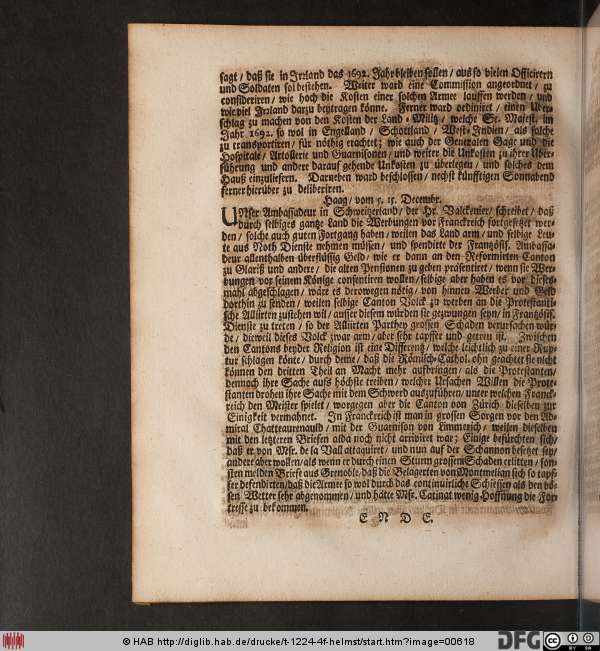 sagt / daß sie in Irzland das 1692. Jahr bleiben sollen / aus so vielen Officirern
und Soldaten sol bestehen. Weiter ward eine Commission angeordnet / zu
consideriren / wie hoch die Kosten einer solchen Armee lauffen werden / und
wie viel Irzland darzu beytragen könne. Ferner ward ordiniret / einen Uberschlag
zu machen von den Kosten der Land-Militz / welche Se. Majest. im
Jahr 1692. so wol in Engelland / Schottland / West-Indien / als solche
zu transportiren / für nöthig erachtet; wie auch der Generalen Gage und die
Hospitale / Artollerie und Guarnisonen / und weiter die Unkosten zu ihrer Uberführung
und andere darauf gehende Unkosten zu überlegen / und solches dem
Hauß einzuliefern. Darneben ward beschlossen / nechst künfftigen Sonnabend
ferner hierüber zu deliberiren.
Haag / vom 5. 15. Decembr.
UNser Ambassadeur in Schweizerland / der Hr. Valckenier / schreibet / daß
durch selbiges gantze Land die Werbungen vor Franckreich fortgesetzet werden
/ solche auch guten Fortgang haben / weilen das Land arm / und selbige Leute
aus Noth Dienste nehmen müssen / und spendirte der Französis. Ambassadeur
allenthalben überflüssig Geld / wie er dann an den Reformirten Canton
zu Glariß und andere / die alten Pensionen zu geben präsentiret / wenn sie Werbungen
vor seinem Könige consentiren wollen / selbige aber haben es vor dieses
mahl abgeschlagen / wäre es derowegen nötig / von hinnen Werber und Geld
dorthin zu senden / weilen selbige Canton Volck zu werben an die Protestantische
Alliirten zustehen will / ausser diesem würden sie gezwungen seyn / in Französis.
Dienste zu treten / so der Alliirten Parthey grossen Schaden verursachen würde
/ dieweil dieses Volck zwar arm / aber sehr tapffer und getreu ist. Zwischen
den Cantons beyder Religion ist eine Differentz / welche leichtlich zu einer Ruptur
schlagen könte / durch deme / daß die Römisch-Cathol. ohn geachtet sie nicht
können den dritten Theil an Macht mehr aufbringen / als die Protestanten /
dennoch ihre Sache aufs höchste treiben / welcher Ursachen Willen die Protestanten
drohen ihre Sache mit dem Schwerd auszuführen / unter welchen Franckreich
den Meister spielet / worgegen aber die Canton von Zürich dieselben zur
Einigkeit vermahnet. In Franckreich ist man in grossen Sorgen vor den Admiral
Chatteaurenauld / mit der Guarnison von Limmerich / weilen dieselben
mit den letzteren Briefen alda noch nicht arriviret war; Einige befürchten sich /
daß er von Msr. de la Vall attaquiret / und nun auf der Schannon besetzet sey /
andere aber wollen / als wenn er durch einen Sturm grossen Schaden erlitten / sonsten
melden Briefe aus Grenoble / daß die Belagerten von Montmelian sich so tapffer
defendirten / daß die Armee so wol durch das continuirliche Schiessen als den bösen
Wetter sehr abgenommen / und hätte Msr. Catinat wenig Hoffnung die Fortresse
zu bekommen.
E N D E.
© HAB http://diglib.hab.de/drucke/t-1224-4f-helmst/start.htm?image=00618
DFG
cc BY SA